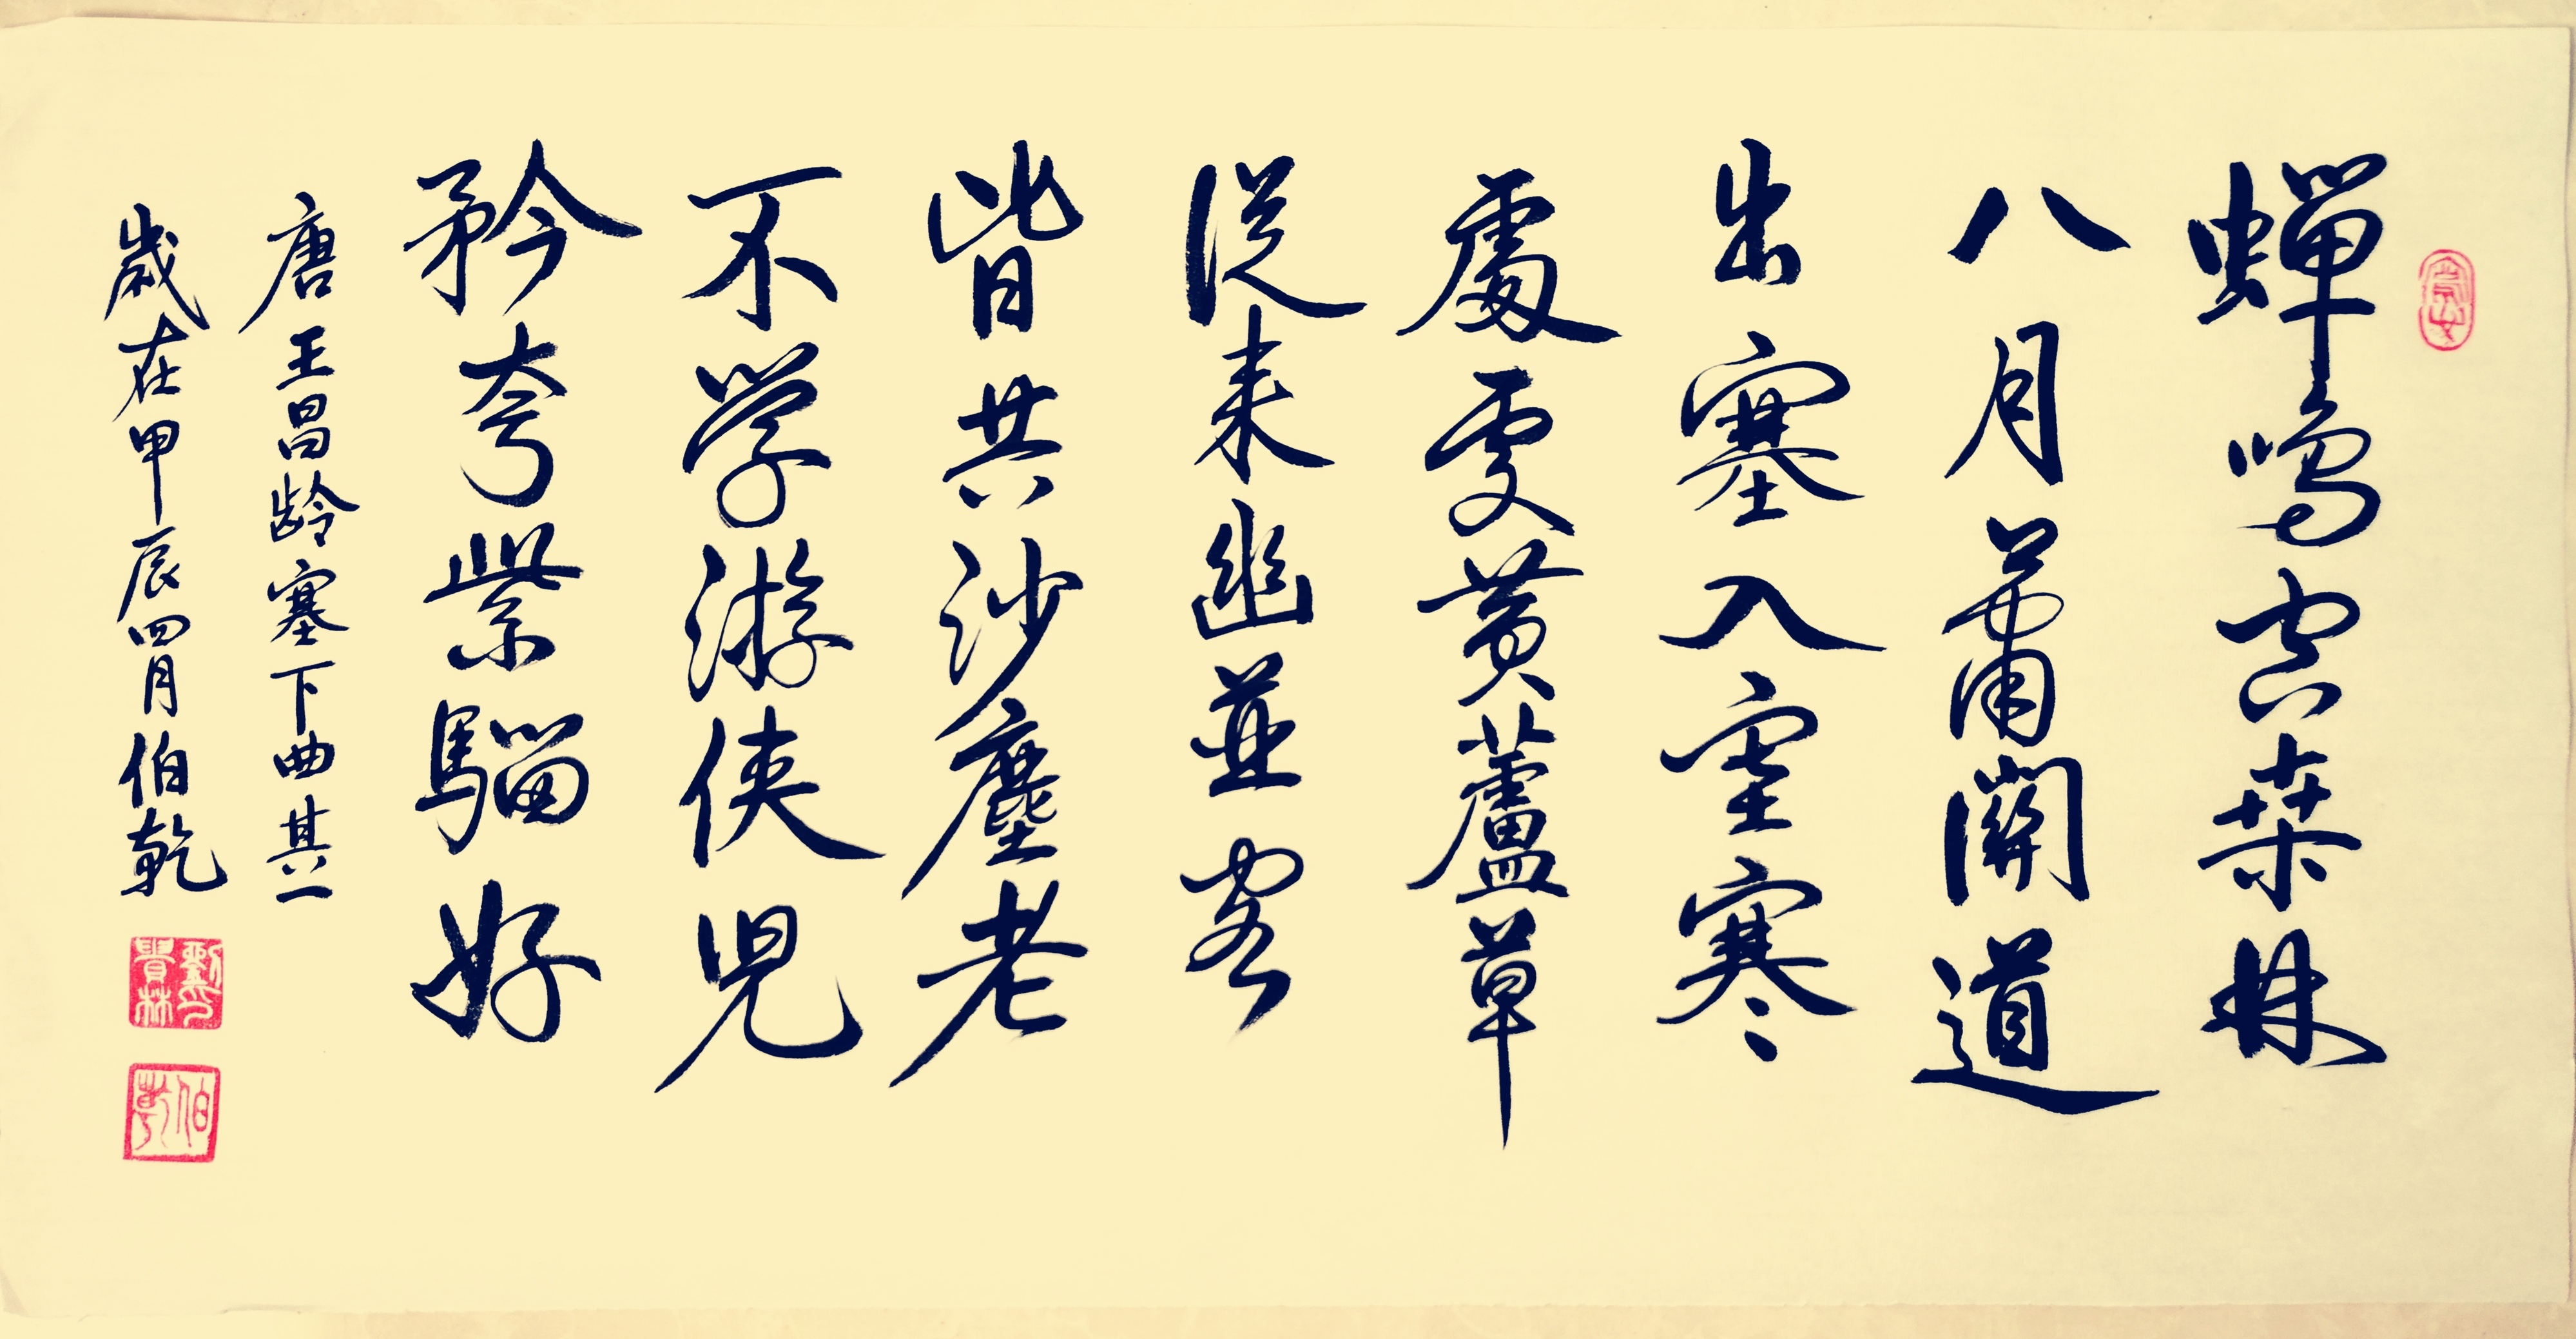 蝉鳴空桑林
八月蕭關道
出塞入塞寒
處處黄蘆草
從来幽並客
皆共沙塵老
不学游侠児
矜夸紫騮好
唐王昌龄塞下曲其一
歲在甲辰四月伯乾
劉印貴林
伯乾